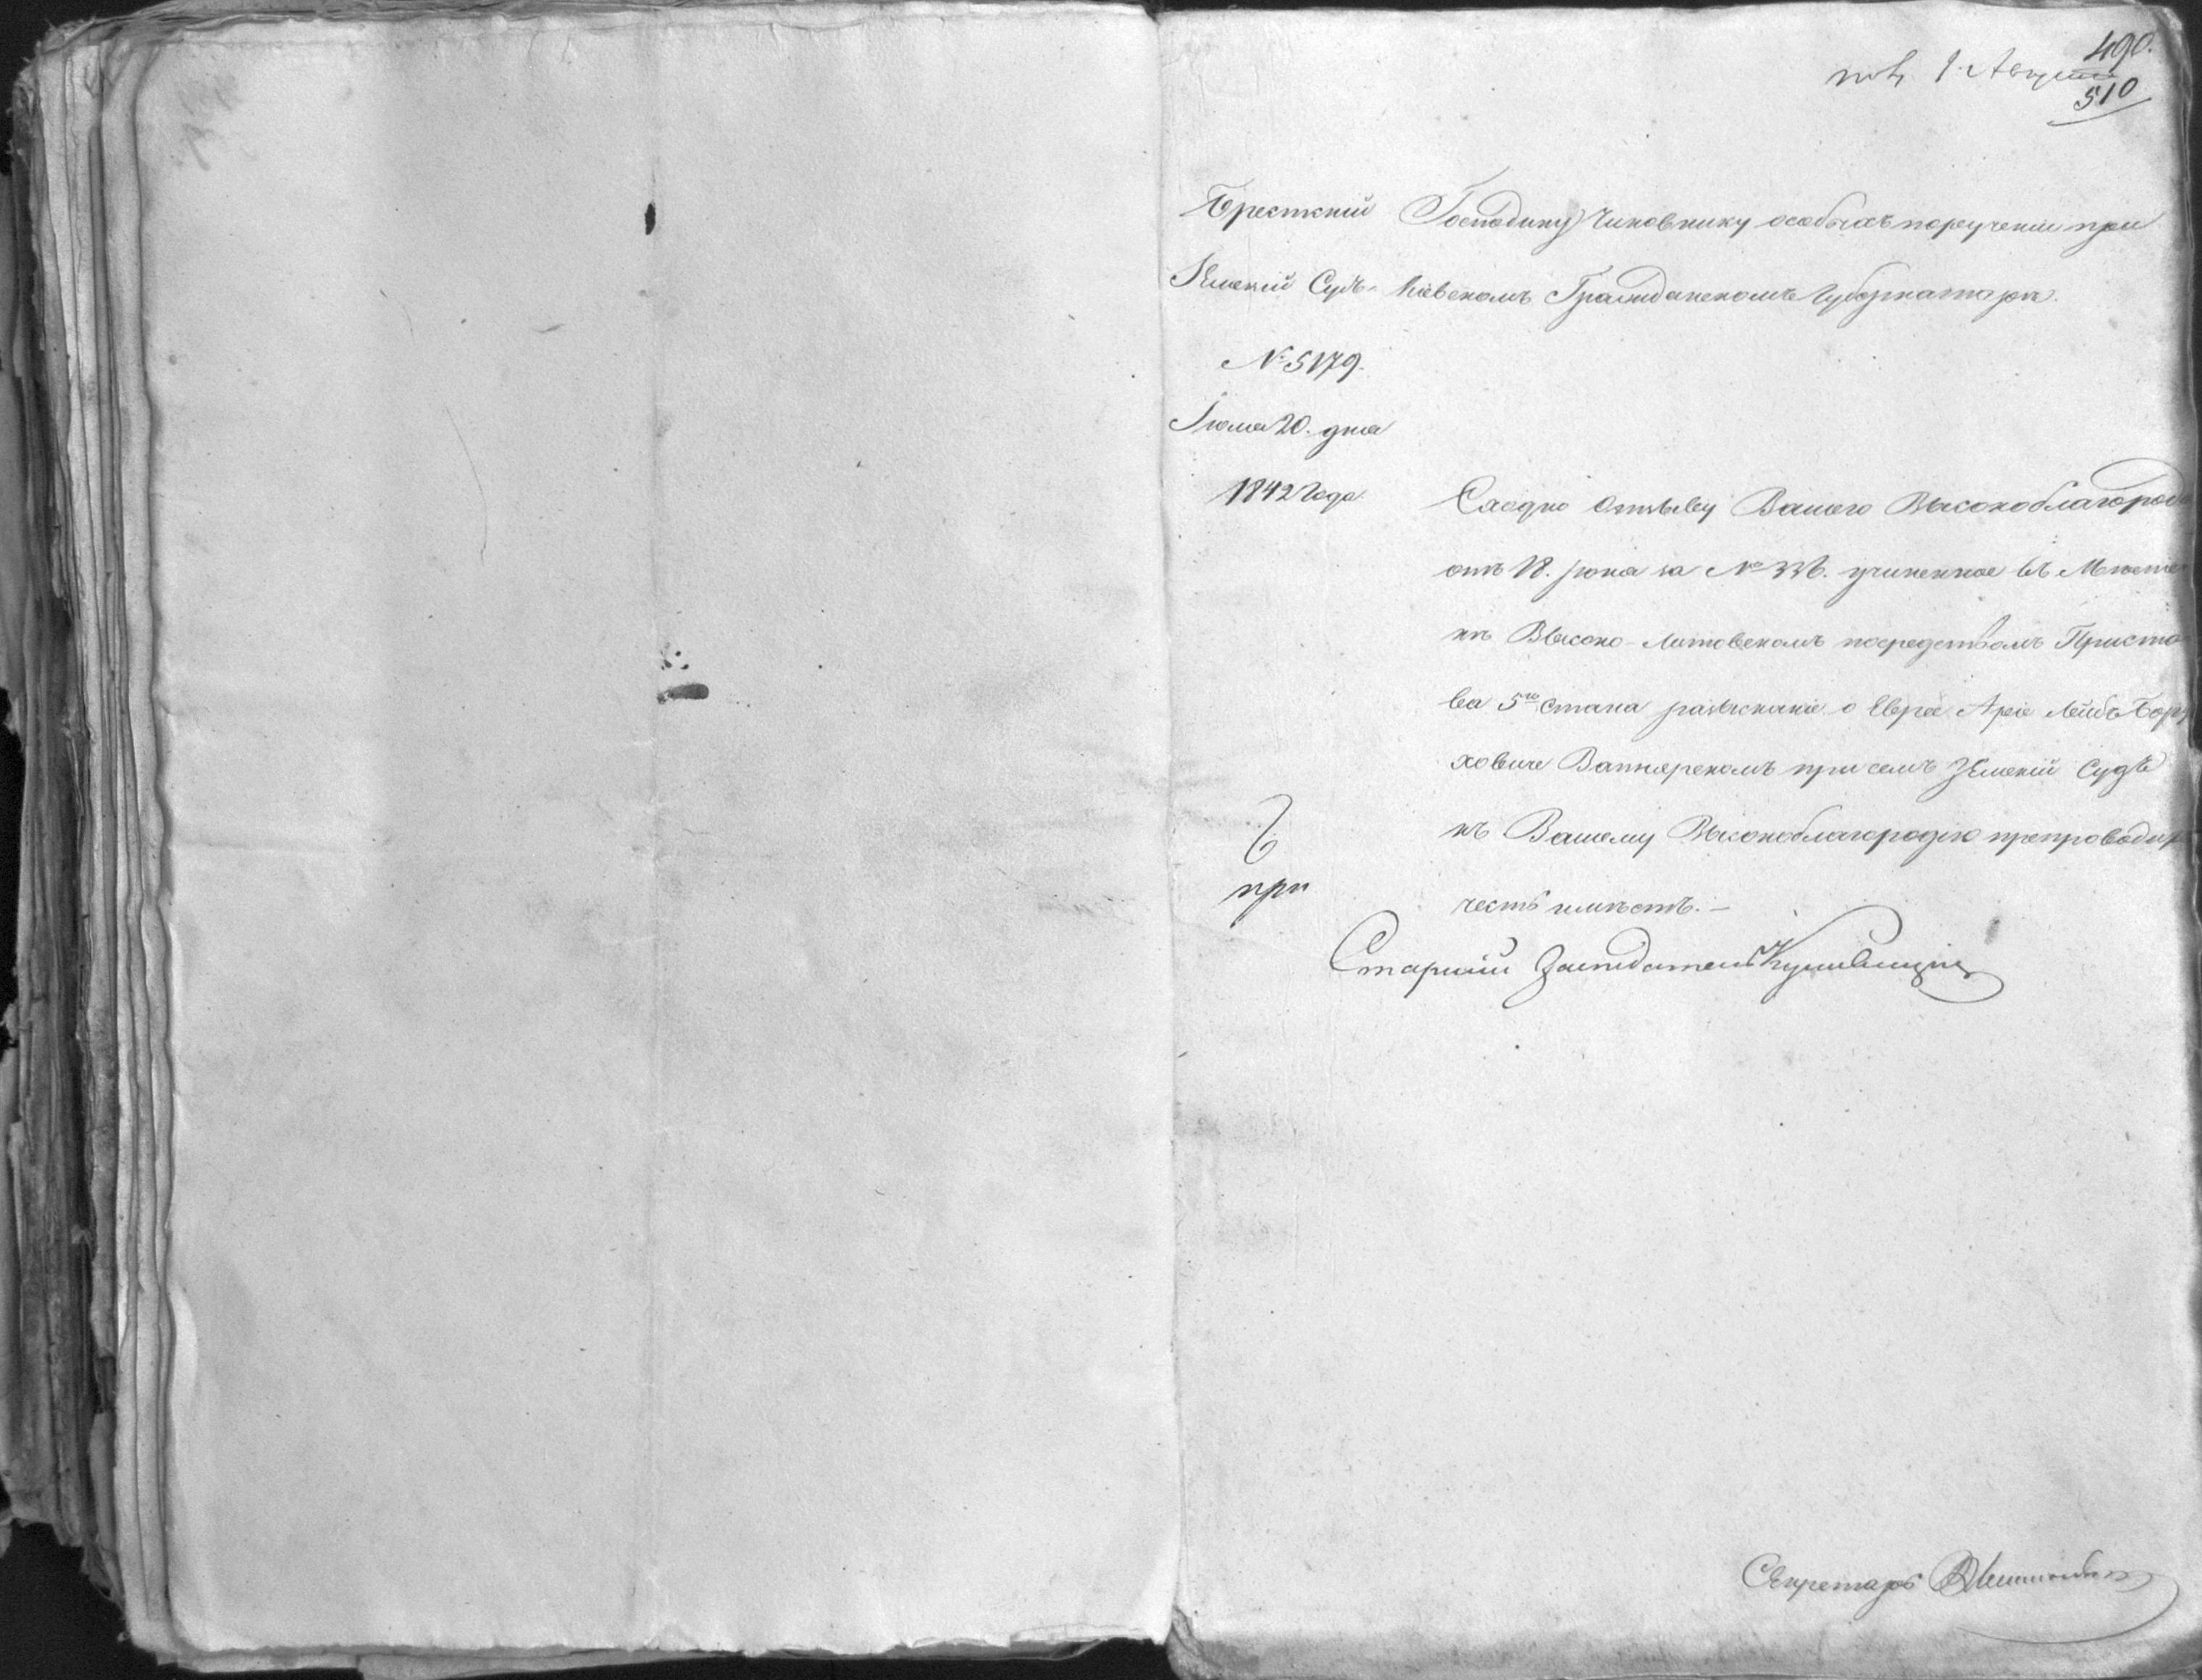 490.
пол. 1 Августа
510
Брестскій
Земскій Судъ
№ 5179.
Іюля 20. дня
1842 года
Господину Чиновнику особыхъ порученій при
Кіевскомъ Гражданскомъ Губернаторѣ.
Сходно отзыву Вашего Высокоблагород
отъ 18. Іюня за № 336. учиненное въ Мѣстеч
кѣ Высоко-Литовскомъ посредствомъ Приста
ва 5го стана разысканіе о Евреѣ Аріе Лейбѣ Бору
ховиче Вапнярскомъ при семъ Земскій Судъ
къ Вашему Высокоблагородію препроводить
честь имѣетъ.—
при
Старшій Засѣдатель
Секретарь